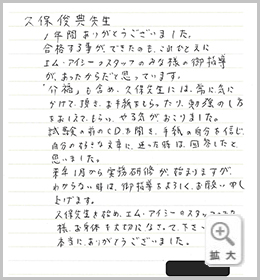 久保俊典先生
1年間ありがとうございました。
合格する事ができたのも、これひとえに
エム・アイシーのスタッフのみな様の御指導
が、あったからだと思っています。
介福も含め、久保先生には、常に気に
かけて頂き、お手紙をもらったり、勉強のし方
をおしえてもらい、やる気がおこりました。
試験の前のCDを聞き、手紙の自分を信じ
自分の好きな文章に、迷った時は、回答したと
思いました。
来年1月から実務研修が、始まりますが、
わからない時は、御指導をよろしく、お願い申し
上げます。
久保先生を始め、エム・アイシーのスタッフの
様、お身体を大切になさって、下さい
本当に、ありがとうございました。
拡大